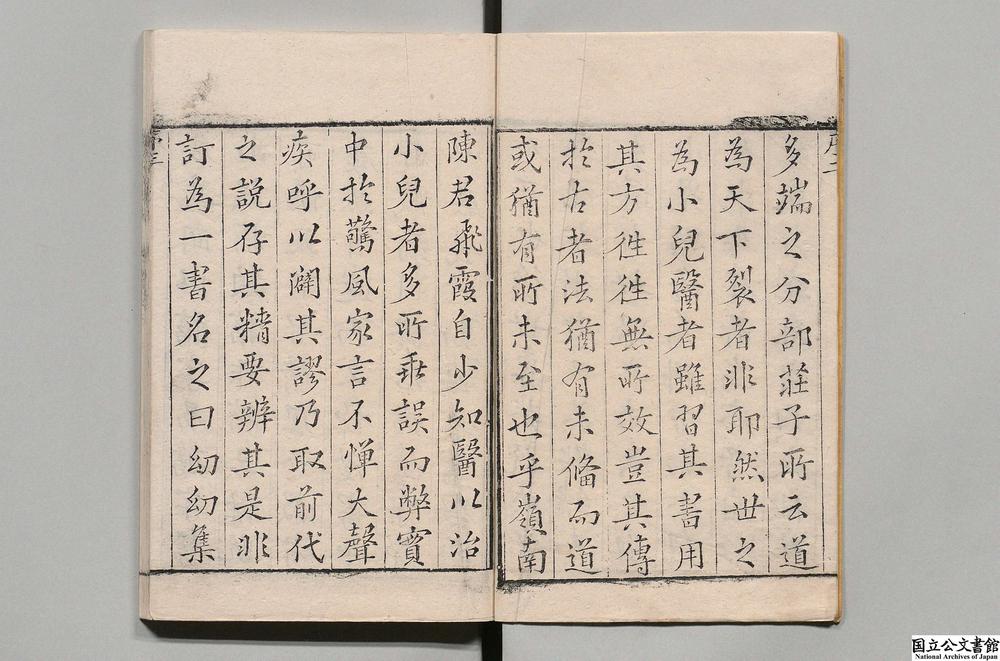 序二
多端之分部莊子所云道
為天下裂者非耶然世之
為小兒醫者雖習其書用
其方徃徃無所效豈其傳
於古者法猶有未俻而道
或猶有所未至也乎嶺南
陳君飛霞自少知醫以治
小兒者多所乖誤而弊實
中於驚風家言不憚大聲
疾呼以闢其謬乃取前代
之説存其精要辨其是非
訂為一書名之曰幼幼集
国立公文書館
National Archives of Japan